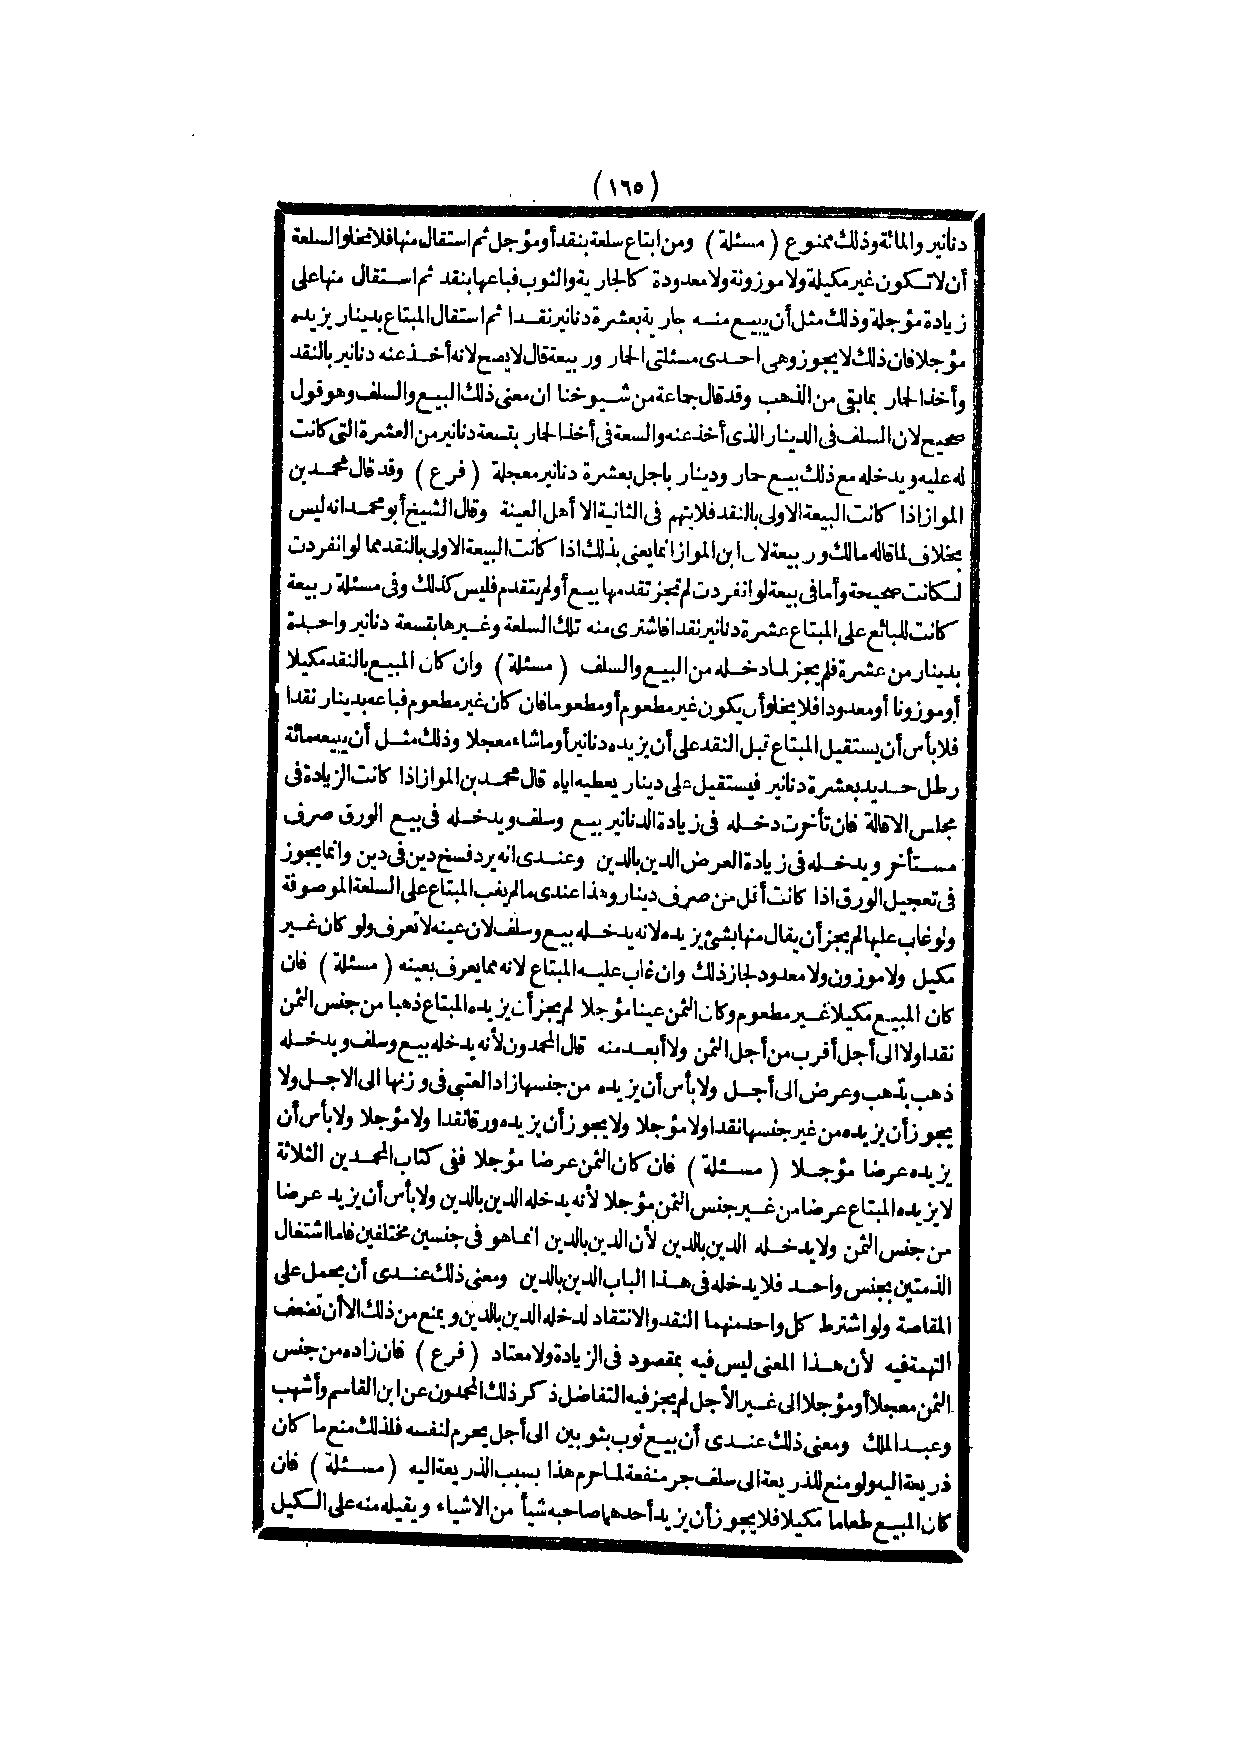 (١٦٥)
دنانير والمائة وذلك ممنوع (مسئلة) ومن ابتاع سلعة بنقد أو مؤجل ثم استقال منها فلا تخلو السلعة
أن لا تكون غير مكيلة ولا موزونة ولا معدودة كالجارية والثوب فباعها بنقد ثم استقال منها على
زيادة مؤجلة وذلك مثل أن يبيع منه جارية بعشرة دنانير نقدا ثم استقال المبتاع بدينار يزيده
مؤجلا فان ذلك لا يجوز وهى احدى مسئلتى الحمار وربيعة قال لا يصح لانه أخذ عنه دنانير بالنقد
وأخذ الحمار بما بقى من الذهب وقد قال جماعة من شيوخنا ان معنى ذلك البيع والسلف وهو قول
صحيح لان السلف فى الدينار الذى أخذ عنه والسعة فى أخذ الحمار بتسعة دنانير من العشرة التى كانت
له عليه ويدخله مع ذلك بيع حمار ودينار باجل بعشرة دنانير معجلة (فرع) وقد قال محمد بن
المواز اذا كانت البيعة الاولى بالنقد فلا يتهم فى الثانية الا أهل العينة وقال الشيخ أبو محمد انه ليس
بخلاف لما قاله مالك وربيعة لان ابن المواز انما يعنى بذلك اذا كانت البيعة الاولى بالنقد مما لو انفردت
لكانت صحيحة وأما فى بيعة لو انفردت لم تجز تقدمها بيع أو لم يتقدم فليس كذلك وفى مسئلة ربيعة
كانت للبائع على المبتاع عشرة دنانير نقدا فاشترى منه تلك السلعة وغيرها بتسعة دنانير واحدة
بدينار من عشرة فلم يجز لما دخله من البيع والسلف (مسئلة) وان كان المبيع بالنقد مكيلا
أو موزونا أو معدودا فلا يخلو أن يكون غير مطعوم أو مطعوما فان كان غير مطعوم فباعه بدينار نقدا
فلا بأس أن يستقيل المبتاع قبل النقد على أن يزيده دنانير أو ما شاء معجلا وذلك مثل أن يبيعه مائة
رطل حديد بعشرة دنانير فيستقيل على دينار يعطيه اياه قال محمد بن المواز اذا كانت الزيادة فى
مجلس الاقالة فان تأخرت دخله فى زيادة الدنانير بيع وسلف ويدخله فى بيع الورق صرف
مستأخر ويدخله فى زيادة العرض الدين بالدين وعندى انه يرد فسخ دين فى دين وانما يجوز
فى تعجيل الورق اذا كانت أقل من صرف دينار وهذا عندى ما لم يغب المبتاع على السلعة الموصوفة
ولو غاب عليها لم يجز أن يقال منها بشئ يزيده لانه يدخله بيع وسلف لان عينه لا تعرف ولو كان غير
مكيل ولا موزون ولا معدود لجاز ذلك وان غاب عليه المبتاع لانه مما يعرف بعينه (مسئلة) فان
كان المبيع مكيلا غير مطعوم وكان الثمن عينا مؤجلا لم يجز أن يزيده المبتاع ذهبا من جنس الثمن
نقدا ولا الى أجل أقرب من أجل الثمن ولا أبعد منه قال المحمدون لأنه يدخله بيع وسلف ويدخله
ذهب بذهب وعرض الى أجل ولا بأس أن يزيده من جنسها زاد العتبى فى وزنها الى الاجل ولا
يجوز أن يزيده من غير جنسها نقدا ولا مؤجلا ولا يجوز أن يزيده ورقا نقدا ولا مؤجلا ولا بأس أن
يزيده عرضا مؤجلا (مسئلة) فان كان الثمن عرضا مؤجلا ففى كتاب المحمدين الثلاثة
لا يزيده المبتاع عرضا من غير جنس الثمن مؤجلا لأنه يدخله الدين بالدين ولا بأس أن يزيد عرضا
من جنس الثمن ولا يدخله الدين بالدين لأن الدين بالدين انما هو فى جنسين مختلفين فاما اشتغال
الذمتين بجنس واحد فلا يدخله فى هذا الباب الدين بالدين ومعنى ذلك عندى أن يحمل على
المقاصة ولو اشترط كل واحد منهما النقد والانتقاد لدخله الدين بالدين ويمنع من ذلك الا أن تضعف
التهمة فيه لأن هذا المعنى ليس فيه بمقصود فى الزيادة ولا معتاد (فرع) فان زاده من جنس
الثمن معجلا أو مؤجلا الى غير الأجل لم يجز فيه التفاضل ذكر ذلك المحمدون عن ابن القاسم وأشهب
وعبد الملك ومعنى ذلك عندى أن بيع ثوب بثوبين الى أجل يحرم لنفسه فلذلك منع ما كان
ذريعة اليه ولو منع للذريعة الى سلف جر منفعة لما حرم هذا بسبب الذريعة اليه (مسئلة) فان
كان المبيع طعاما مكيلا فلا يجوز أن يزيد أحدهما صاحبه شيأ من الاشياء ويقيله منه على الكيل